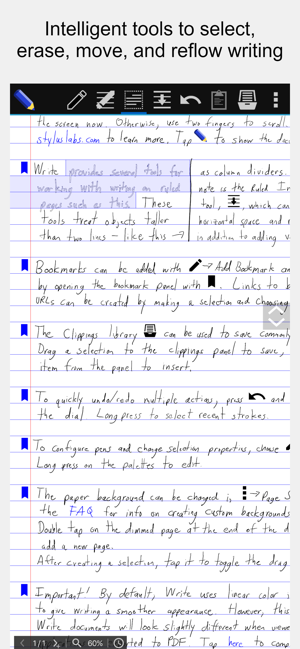 Intelligent tools to select,
erase, move, and reflow writing
the screen now. Otherwise, use two fingers to scroll.
styluslabs.com to learn more. Tap to show the doc
Write provides several tools for
working with writing on ruled
pages such as this. These
tools treat objects taller
than two lines – like this →
as column dividers.
note is the Ruled In
tool, , which can
horizontal space and
in addition to adding v
Bookmarks can be added with → Add Bookmark
by opening the bookmark panel with . Links to b
URLs can be created by making a selection and choosing
The Clippings library can be used to save commonly
Drag a selection to the clippings panel to save,
item from the panel to insert.
To quickly undo/redo multiple actions, press and
the dial. Long press to select recent strokes.
To configure pens and change selection properties, choose
Long press on the palettes to edit.
The paper background can be changed in → Page S
the FAQ for info on creating custom backgrounds
Double tap on the dimmed page at the end of the d
add a new page.
After creating a selection, tap it to toggle the drag
Important! By default, Write uses linear color
to give writing a smoother appearance. However, this
Write documents will look slightly different when viewe
ted to PDF. Tap here to
1/1
60%